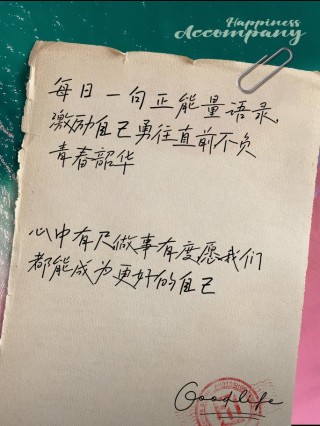 Happiness
Accompany
每日一句正能量语录,
激励自己勇往直前不负
青春韶华
心中有尺做事有度愿我们
都能成为更好的自己
Goodlife